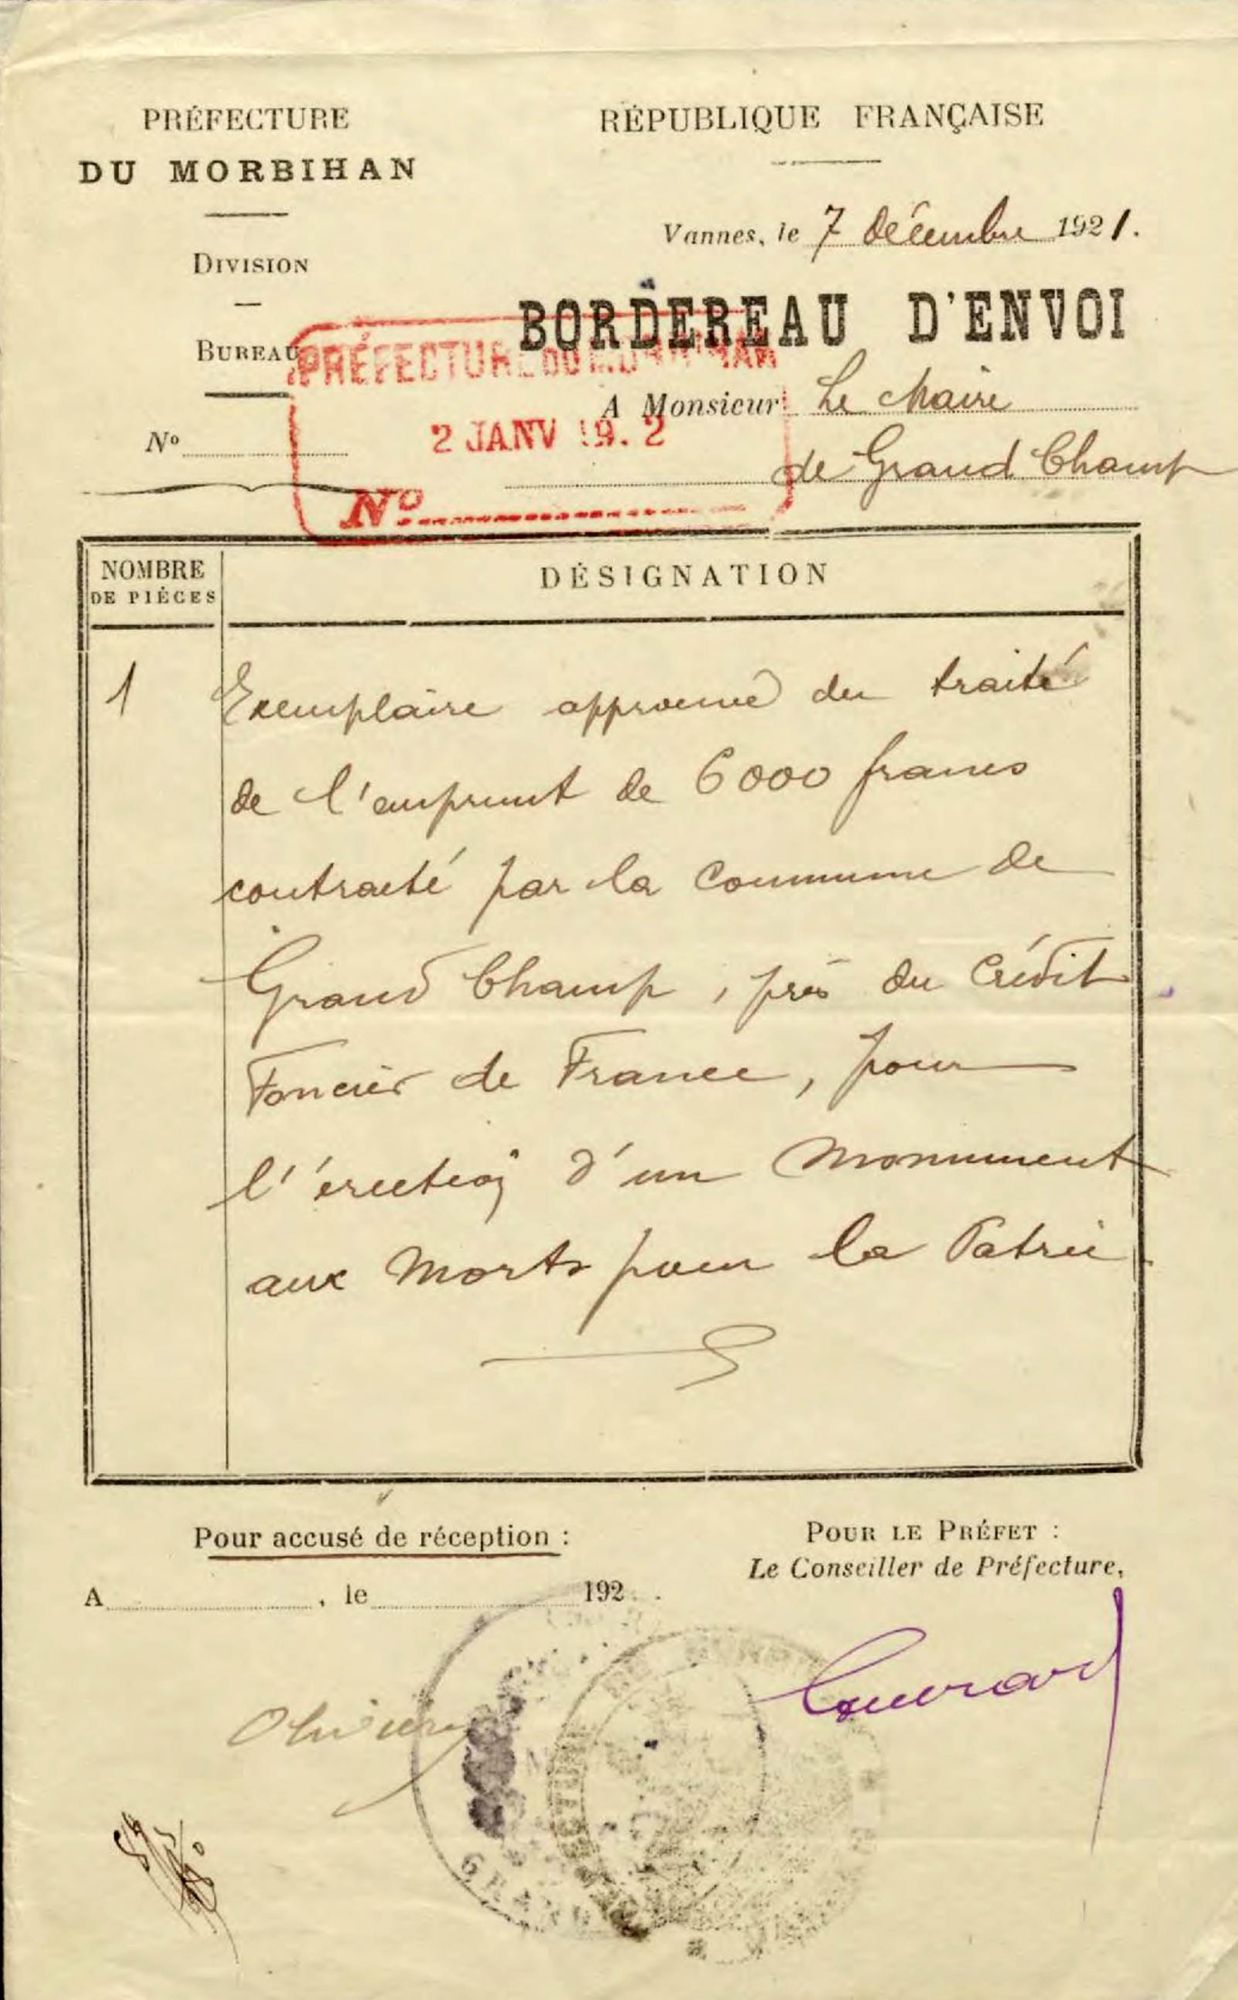 PRÉFECTURE
DU MORBIHAN
DIVISION
BUREAU
Nº
RÉPUBLIQUE FRANÇAISE
Vannes, le 7 décembre 1921.
BORDEREAU D'ENVOI
PRÉFECTURE DU MORBIHAN
2 JANV 19.2
Nº
A Monsieur Le Maire
de Grand Champ
NOMBRE
DE PIÈCES
DÉSIGNATION
1
Exemplaire approuvé du traité
de l'emprunt de 6000 francs
contracté par la commune de
Grand Champ, près du Crédit
Foncier de France, pour
l'érection d'un Monument
aux Morts pour la Patrie.
Pour accusé de réception :
A , le 192 .
POUR LE PRÉFET :
Le Conseiller de Préfecture,